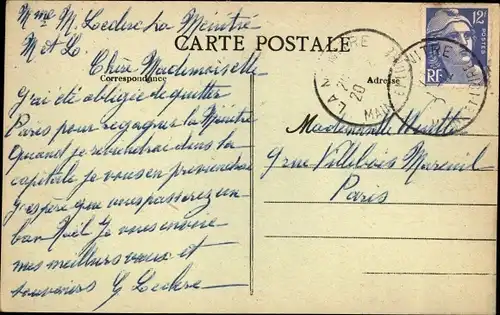 Mme M. Leclerc La Ménitré
M & L
CARTE POSTALE
Correspondance
Adresse
Chère Mademoiselle
J'ai été obligée de quitter
Paris pour regagner la Ménitré
Quand je rebiendrai dans la
capitale je vous en préviendrai
J'espère que vous passerez un
bon Noël Je vous envoie
mes meilleurs vœux et
souvenirs G Leclerc
12F
POSTES
RF
LA MÉNITRÉ
20
MAINE
Mademoiselle
9 rue Villebois Mareuil
Paris